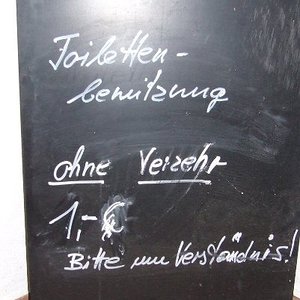 Toiletten-
benützung
ohne Verzehr
1,- €
Bitte um Verständnis!